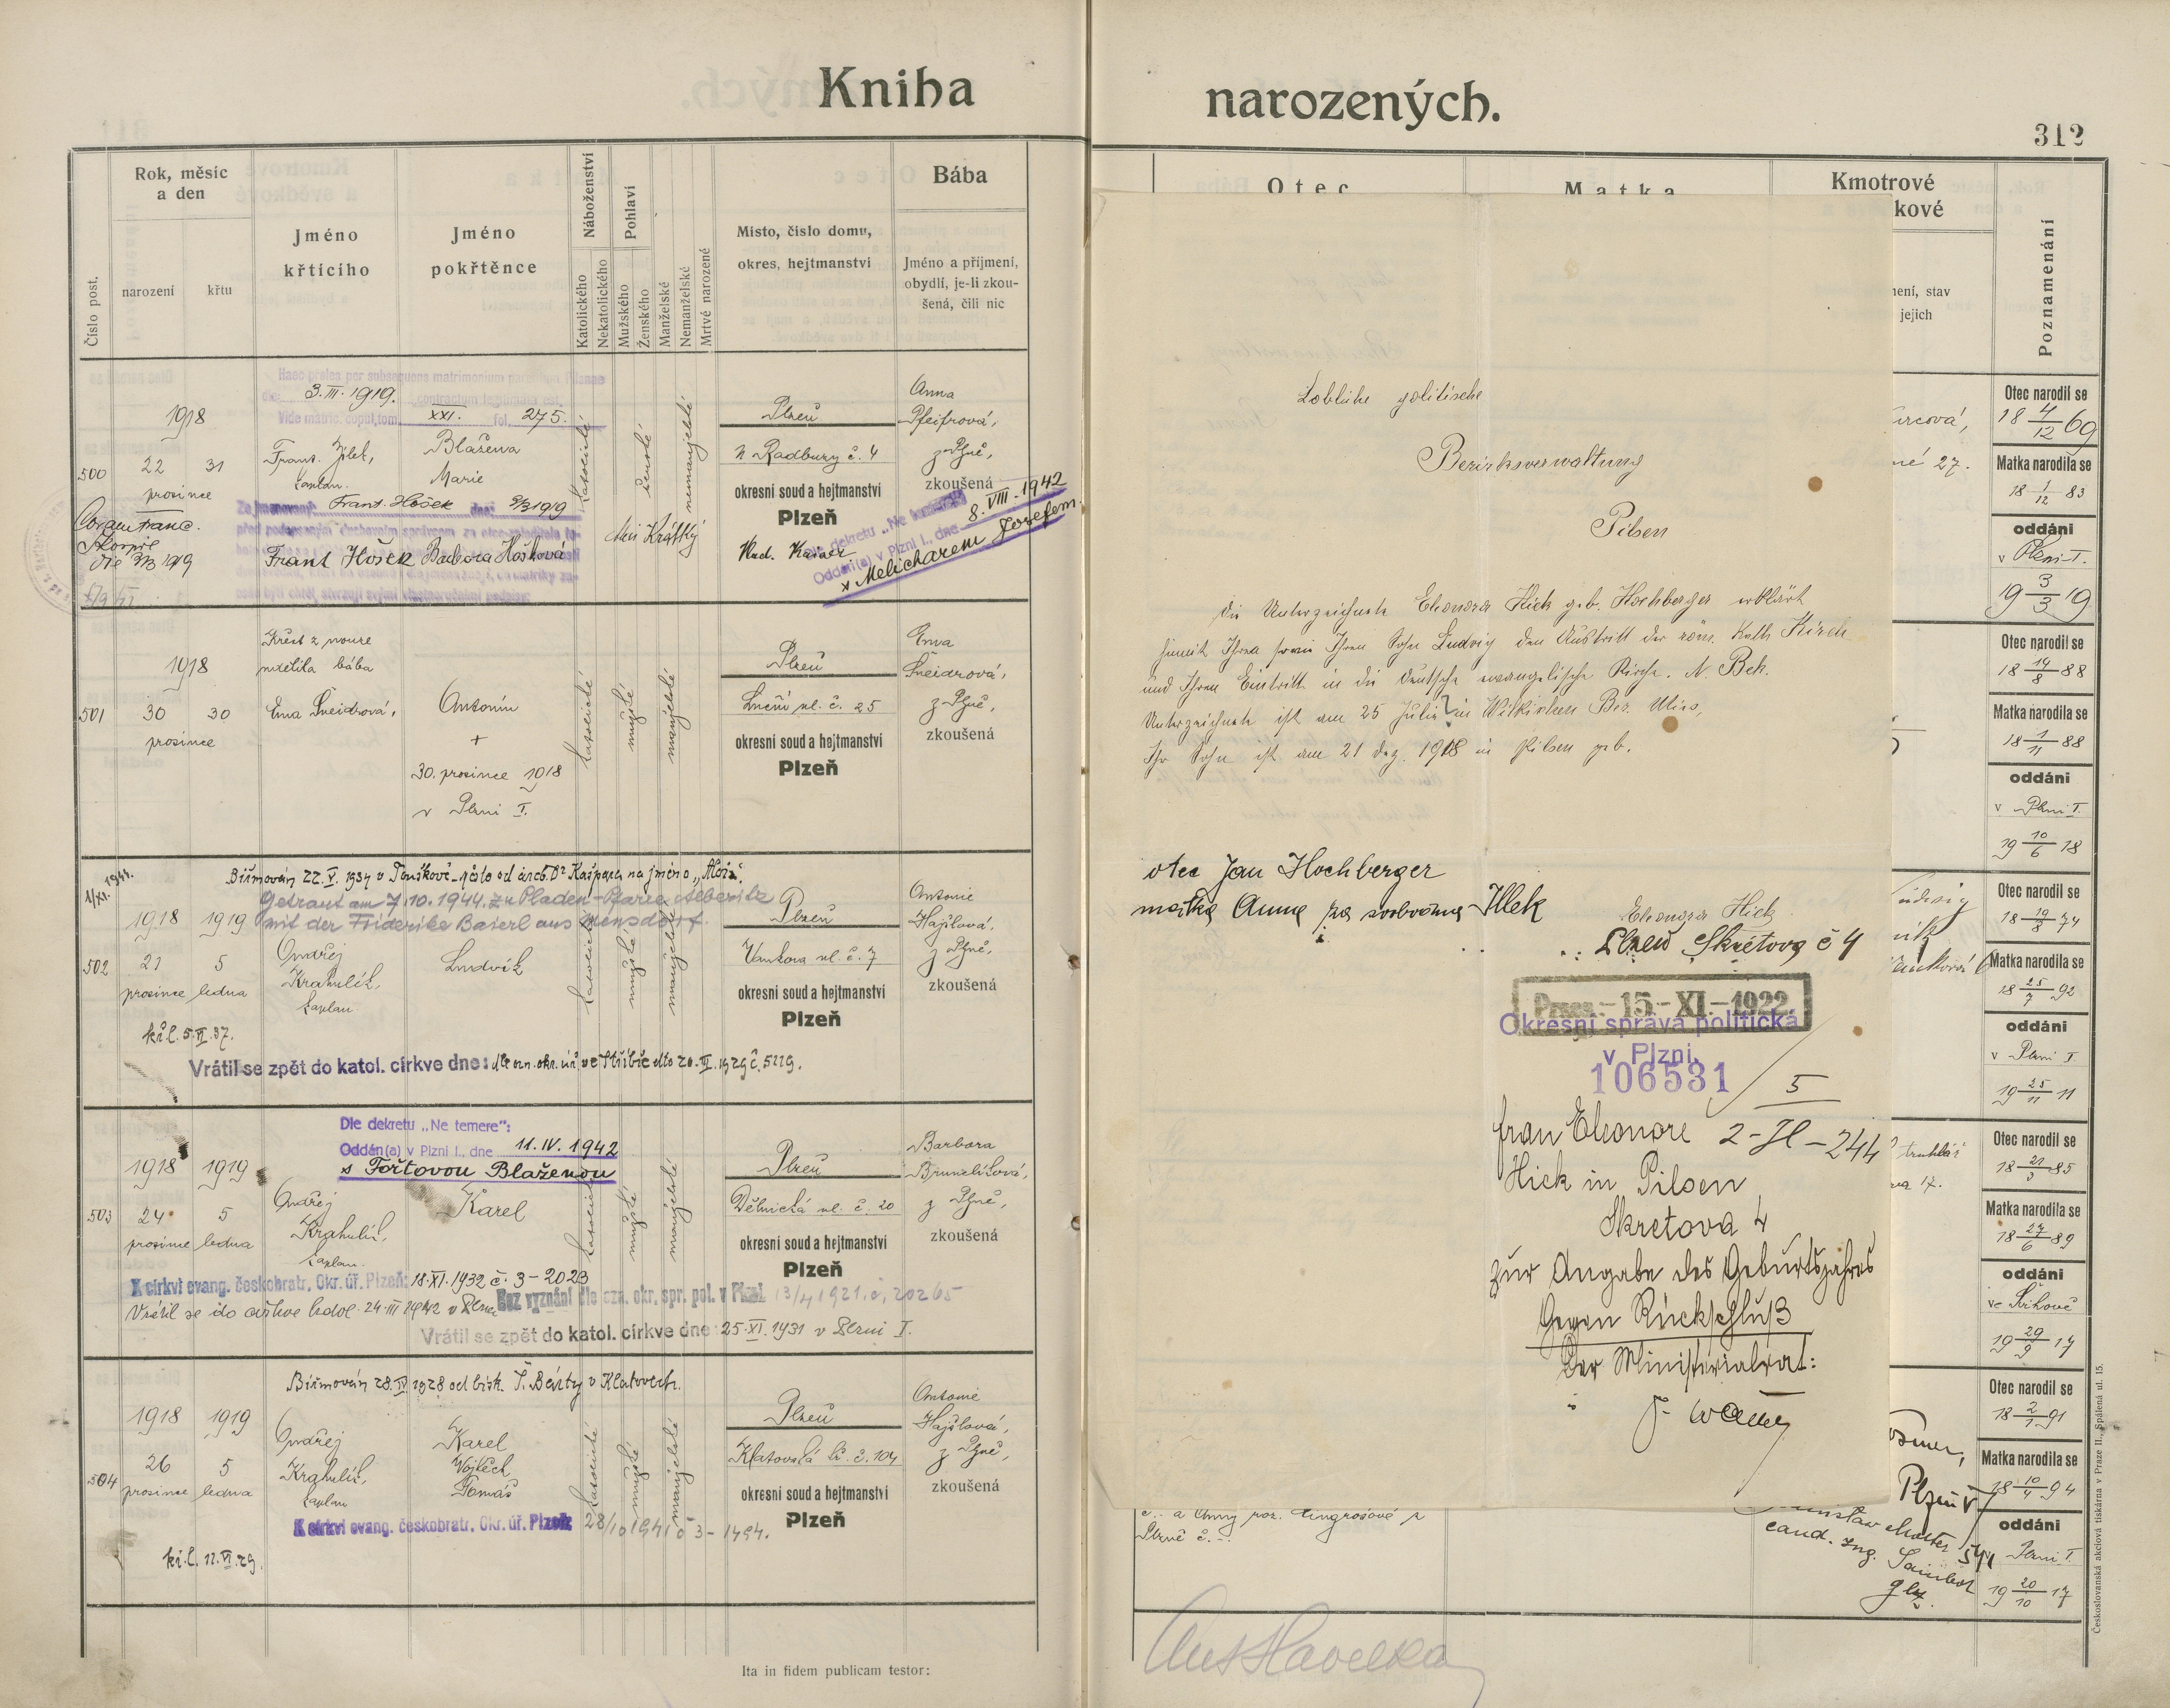 Kniha
narozených.
312
Číslo post.
Rok, měsíc
a den
narození
křtu
Jméno
křtícího
Jméno
pokřtěnce
Náboženství
Katolického
Nekatolického
Pohlaví
Mužského
Ženského
Manželské
Nemanželské
Mrtvé narozené
Místo, číslo domu,
okres, hejtmanství
Bába
Jméno a příjmení,
obydlí, je-li zkou-
šená, čili nic
Otec
Matka
Kmotrové
kové
ení, stav
jejich
Poznamenání
Haec proles per subsequens matrimonium
die 3. III. 1919. contractum legitimata est.
Vide matric. copul. tom. XXI. fol. 275.
500
1918
22 31
prosince
Frant.
kaplan.
Blažena
Marie
katolické
ženské
nemanželské
Plzeň
N Radbuzy č. 4
okresní soud a hejtmanství
Plzeň
Anna
Pfeifrová,
z Plzně,
zkoušená
Frant. Hošek dne 3/3 1919
Coram Franc.
die 3/3 1919
Frant Hošek Barbora Hošková
Rud. Kaiser
dle dekretu „Ne temere"
Oddán(a) v Plzni I., dne 8. VIII. 1942
s Melicharem Josefem.
501
1918
30 30
prosince
Křest z nouze
udělila bába
Ema Šneidrová,
Antonín
+
30. prosince 1918
v Plzni I.
katolické
mužské
manželské
Plzeň
Luční ul. č. 25
okresní soud a hejtmanství
Plzeň
Ema
Šneidrová,
z Plzně,
zkoušená
1/XI. 1944.
Biřmován 22. V. 1937 v Touškově-město od arcib. Dr Kašpara na jméno „Alois".
Getraut am 7.10.1944. zu Pladen-Pfarre Alberitz
mit der Friderike Baierl aus Mensdorf.
502
1918 1919
21 5
prosince ledna
Ondřej
Krahulík,
kaplan
Ludvík
katolické
mužské
manželské
Plzeň
Vankova ul. č. 7
okresní soud a hejtmanství
Plzeň
Antonie
Hajšlová,
z Plzně,
zkoušená
kř. l. 5. VI. 37.
Vrátil se zpět do katol. církve dne: dle ozn. okr. úř. ve Stříbře dto 20. III. 1929 č. 5229.
Dle dekretu „Ne temere":
Oddán(a) v Plzni I., dne 11. IV. 1942
s Fořtovou Blaženou
503
1918 1919
24 5
prosince ledna
Ondřej
Krahulík,
kaplan.
Karel
katolické
mužské
manželské
Plzeň
Dělnická ul. č. 20
okresní soud a hejtmanství
Plzeň
Barbora
Brunclíková,
z Plzně,
zkoušená
K církvi evang. českobratr. Okr. úř. Plzeň: 18. XI. 1932 č. 3-2023
Bez vyznání dle ozn. okr. spr. pol. v Plzni 13/4 1921. č. 20265
Vrátil se do církve 24. III 1942 v Plzni
Vrátil se zpět do katol. církve dne: 25. XI. 1931 v Plzni I.
Biřmován 28. IV 1928 od bisk. Š. Bárty v Klatovech.
504
1918 1919
26 5
prosince ledna
Ondřej
Krahulík,
kaplan
Karel
Vojtěch
Tomáš
katolické
mužské
manželské
Plzeň
Klatovská tř. č. 104
okresní soud a hejtmanství
Plzeň
Antonie
Hajšlová,
z Plzně,
zkoušená
K církvi evang. českobratr. Okr. úř. Plzeň 28/10 1941 č 3-1494.
kř. l. 12. VI. 29.
Ita in fidem publicam testor:
Löbliche politische
Bezirksverwaltung
Pilsen
Die Unterzeichnete Eleonora Hick geb. Hochberger erklärt
hiemit Ihren sowie Ihren Sohn Ludvig den Austritt der röm. Kath Kirch
und Ihren Eintritt in die deutsche evangelische Kirche. A. Bek.
Unterzeichnete ist am 25 Juli in Wilkischen Bez. Mies,
Ihr Sohn ist am 21 dez. 1918 in Pilsen geb.
otec Jan Hochberger
matka Anna za svobodna Illek
Eleonora Hick
Plzeň Skretova č 4
Praes. - 15 - XI. - 1922
Okresní správa politická
v Plzni.
106531/5
Frau Eleonore 2-H-244
Hick in Pilsen
Skretova 4
zur Angabe des Geburtsjahres
Gegen Rückschluß
Der Ministerialrat:
rcová,
27.
truhlář
17.
Plzeň
cand. Ing.
č. a Anny roz.
Plzně č.
Ant Havelka
Otec narodil se
18 4/12 69
Matka narodila se
18 1/12 83
oddáni
v Plzni I.
19 3/3 19
Otec narodil se
18 19/8 88
Matka narodila se
18 1/11 88
oddáni
v Plzni I.
19 10/6 18
Otec narodil se
18 19/8 74
Matka narodila se
18 25/7 92
oddáni
v Plzni I
19 25/11 11
Otec narodil se
18 21/3 85
Matka narodila se
18 27/6 89
oddáni
ve Švihově
19 29/9 17
Otec narodil se
18 2/1 91
Matka narodila se
18 10/4 94
oddáni
v Plzni I.
19 20/10 17
Československá akciová tiskárna v Praze II., Spálená ul. 15.